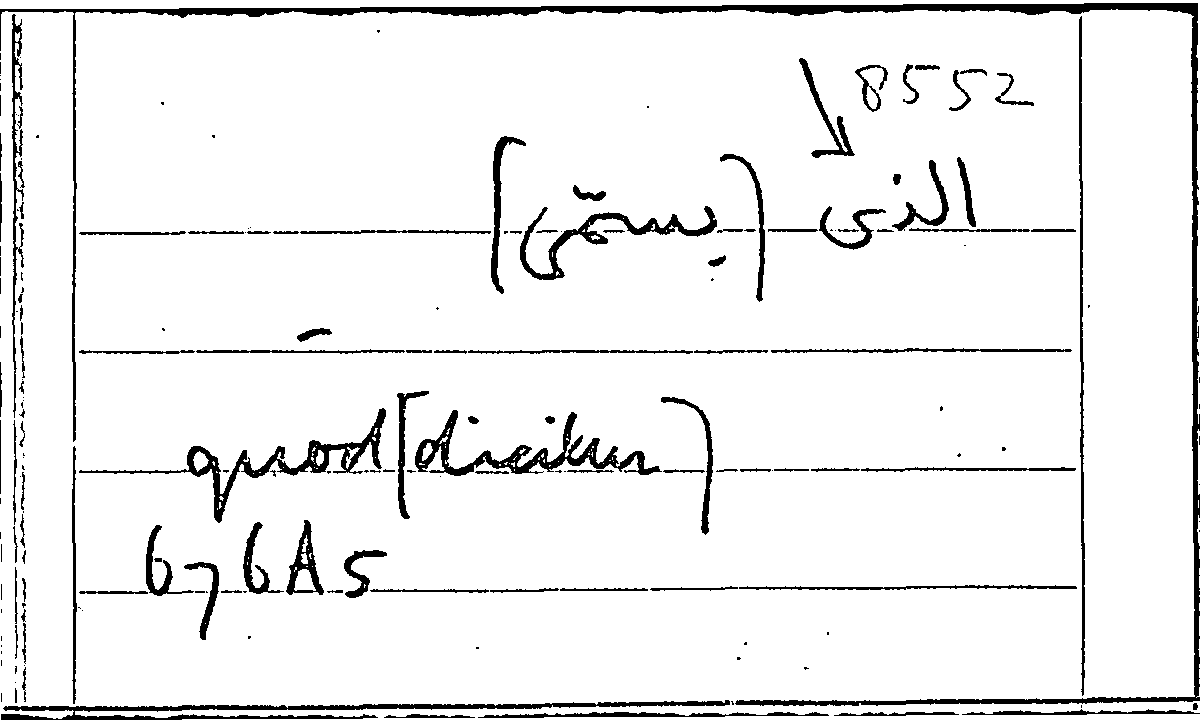 8552
الذى (يسمّى)
quod (dicitur)
676A5